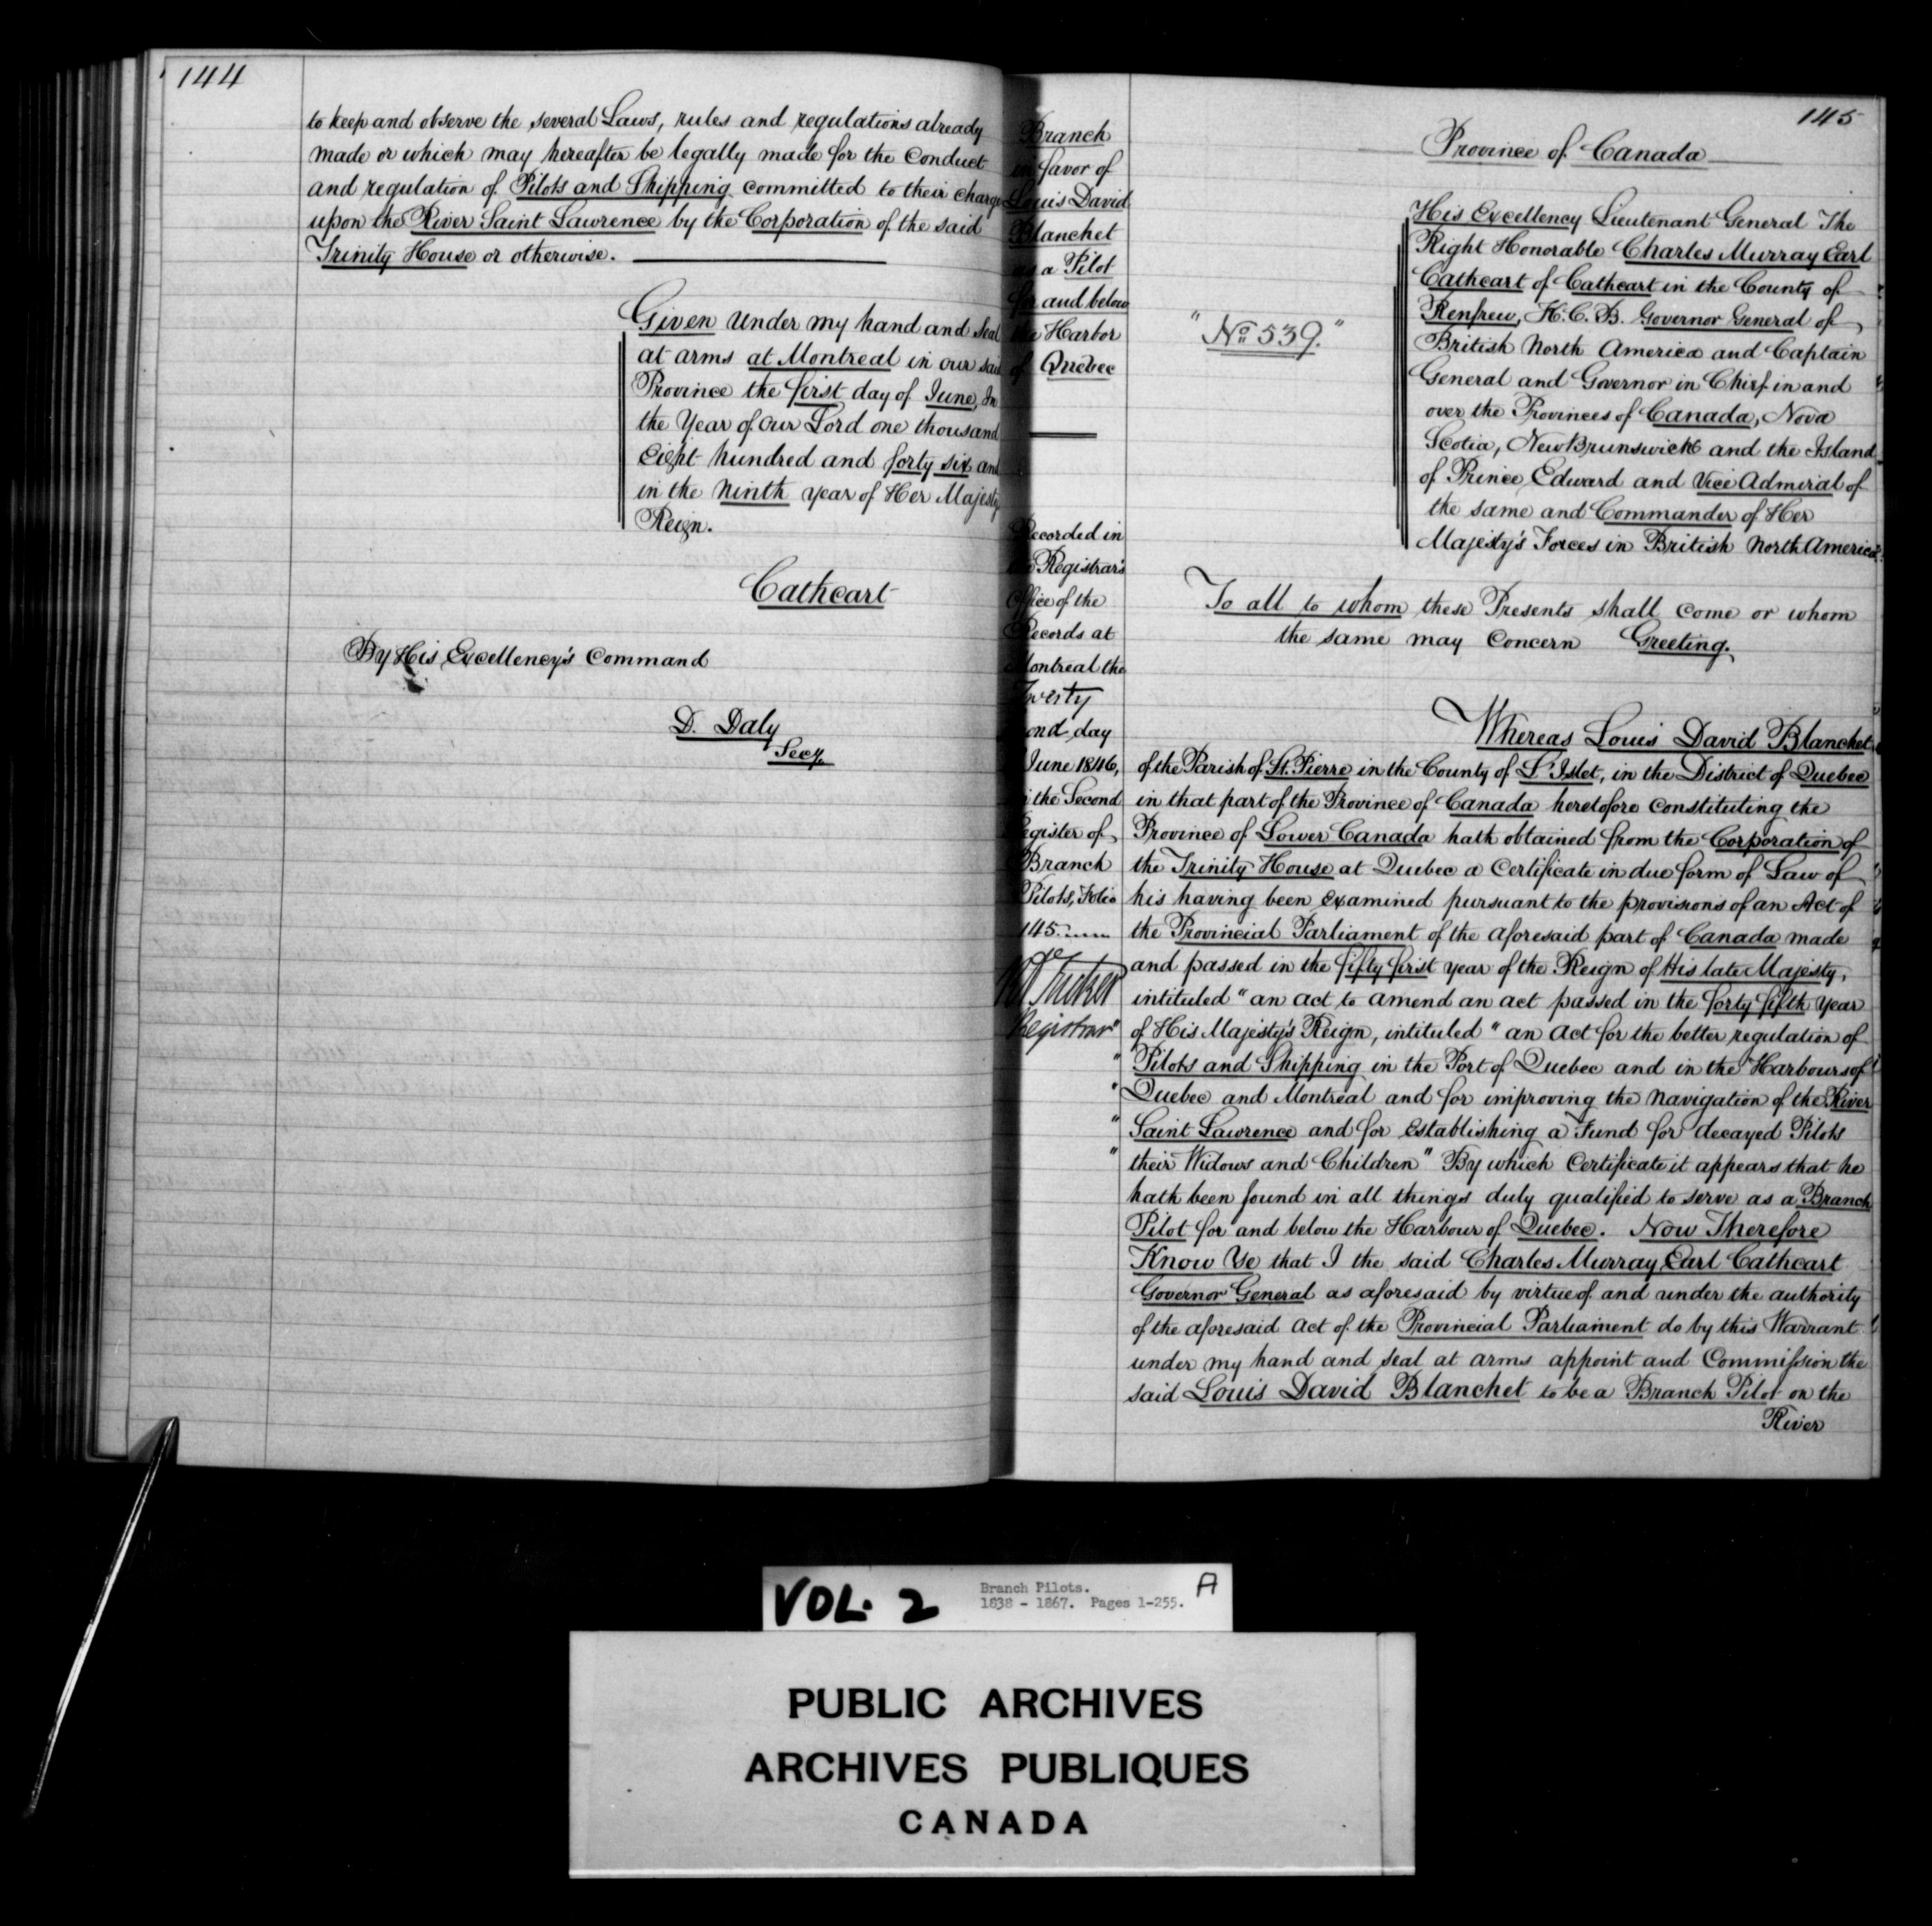 144
to keep and observe the several Laws, rules and regulations already
made or which may hereafter be legally made for the Conduct
and regulation of Pilots and Shipping committed to their charge
upon the River Saint Lawrence by the Corporation of the said
Trinity House or otherwise.
Given under my hand and Seal
at arms at Montreal in our said
Province the first day of June, In
the Year of our Lord one thousand
Eight hundred and forty six and
in the Ninth year of Her Majesty's
Reign.
Cathcart
By His Excellency's Command
D. Daly
Secy.
145
Branch
in favor of
Louis David
Blanchet
as a Pilot
for and below
the Harbor
of Quebec
Recorded in
the Registrar's
Office of the
Records at
Montreal the
Twenty
ond day
June 1846,
in the Second
Register of
Branch
Pilots, Folio
145
Registrar"
Province of Canada
"No. 539."
His Excellency Lieutenant General The
Right Honorable Charles Murray Earl
Cathcart of Cathcart in the County of
Renfrew, K.C.B. Governor General of
British North America and Captain
General and Governor in Chief in and
over the Provinces of Canada, Nova
Scotia, New Brunswick and the Island
of Prince Edward and Vice Admiral of
the same and Commander of Her
Majesty's Forces in British North America
To all to whom these Presents shall come or whom
the same may Concern Greeting.
Whereas Louis David Blanchet
of the Parish of St. Pierre in the County of L'Islet, in the District of Quebec
in that part of the Province of Canada heretofore constituting the
Province of Lower Canada hath obtained from the Corporation of
the Trinity House at Quebec a Certificate in due form of Law of
his having been Examined pursuant to the provisions of an Act of
the Provincial Parliament of the aforesaid part of Canada made
and passed in the fifty first year of the Reign of His late Majesty,
intituled "an act to amend an act passed in the forty fifth Year
of His Majesty's Reign, intituled "an Act for the better regulation of
" Pilots and Shipping in the Port of Quebec and in the Harbours of
" Quebec and Montreal and for improving the Navigation of the River
" Saint Lawrence and for Establishing a Fund for decayed Pilots
" their Widows and Children" By which Certificate it appears that he
hath been found in all things duly qualified to serve as a Branch
Pilot for and below the Harbour of Quebec. Now Therefore
Know Ye that I the said Charles Murray Earl Cathcart
Governor General as aforesaid by virtue of and under the authority
of the aforesaid Act of the Provincial Parliament do by this Warrant
under my hand and seal at arms appoint and Commission the
said Louis David Blanchet to be a Branch Pilot on the
River
VOL. 2
Branch Pilots.
1838 - 1867. Pages 1-255.
A
PUBLIC ARCHIVES
ARCHIVES PUBLIQUES
CANADA